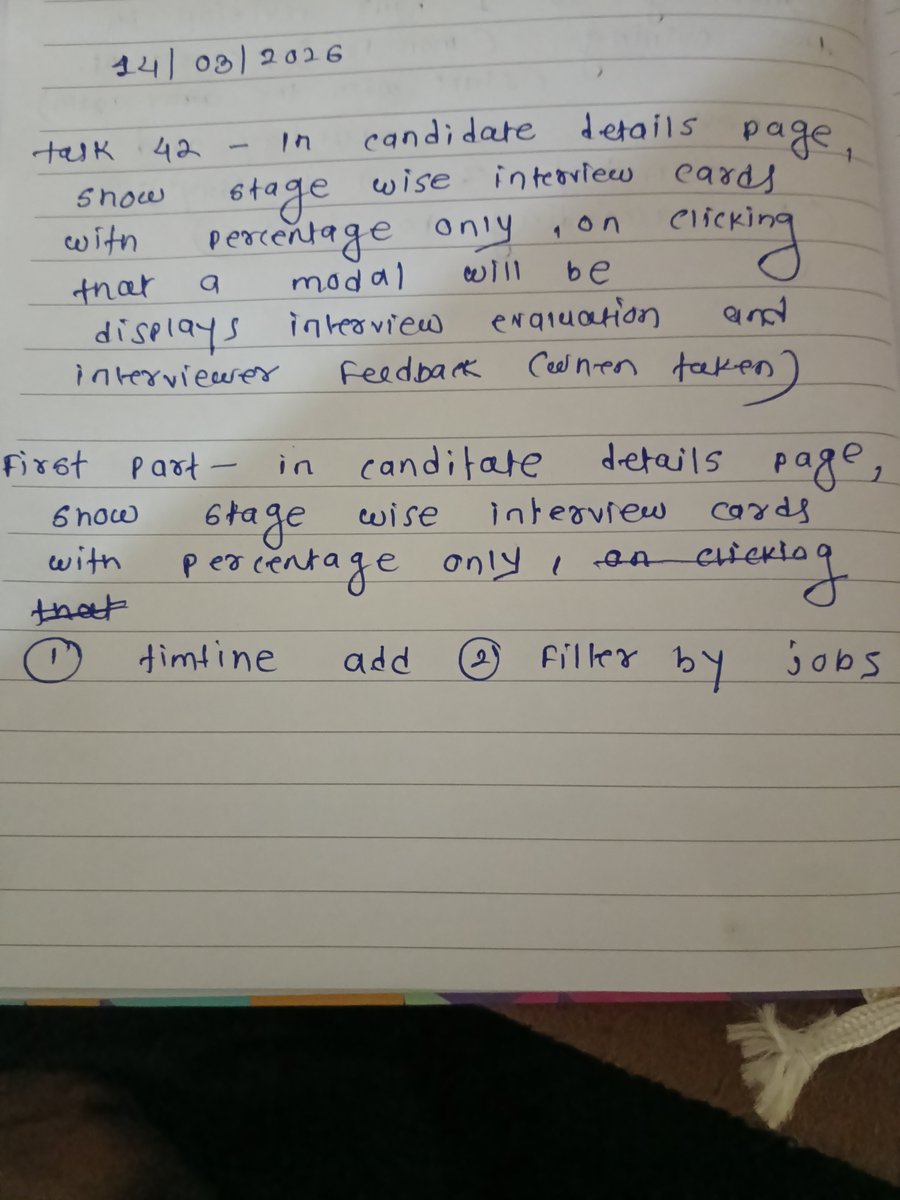 14/03/2026
task 42 - In candidate details page,
show stage wise interview cards
with percentage only, on clicking
that a modal will be
displays interview evaluation and
interviewer Feedback (when taken)
First part - in canditate details page,
show stage wise interview cards
with percentage only, on clicking
that
① timtine add ② Filter by jobs